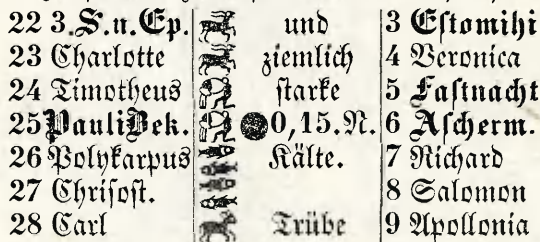 22 3.S.n.Ep. und 3 Estomihi
23 Charlotte ziemlich 4 Veronica
24 Timotheus starke 5 Fastnacht
25 Pauli Bek. 0,15.N. 6 Ascherm.
26 Polykarpus Kälte. 7 Richard
27 Chrisost. 8 Salomon
28 Carl Trübe 9 Apollonia